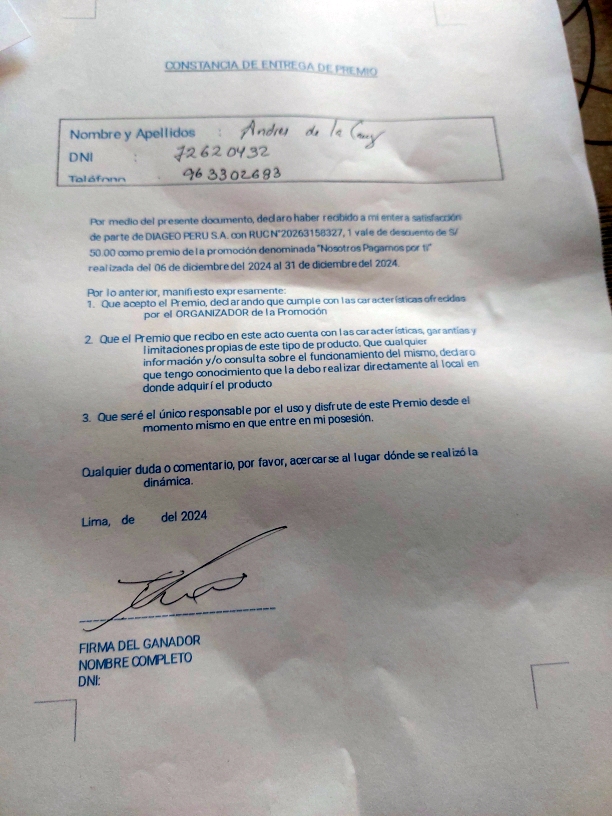 CONSTANCIA DE ENTREGA DE PREMIO
Nombre y Apellidos : Andres de la Cruz
DNI : 72620432
Teléfono : 963302683
Por medio del presente documento, declaro haber recibido a mi entera satisfacción
de parte de DIAGEO PERU S.A. con RUC N°20263158327, 1 vale de descuento de S/
50.00 como premio de la promoción denominada "Nosotros Pagamos por ti"
realizada del 06 de diciembre del 2024 al 31 de diciembre del 2024.
Por lo anterior, manifiesto expresamente:
1. Que acepto el Premio, declarando que cumple con las características ofrecidas
por el ORGANIZADOR de la Promoción
2. Que el Premio que recibo en este acto cuenta con las características, garantías y
limitaciones propias de este tipo de producto. Que cualquier
información y/o consulta sobre el funcionamiento del mismo, declaro
que tengo conocimiento que la debo realizar directamente al local en
donde adquirí el producto
3. Que seré el único responsable por el uso y disfrute de este Premio desde el
momento mismo en que entre en mi posesión.
Cualquier duda o comentario, por favor, acercarse al lugar dónde se realizó la
dinámica.
Lima, de del 2024
FIRMA DEL GANADOR
NOMBRE COMPLETO
DNI: